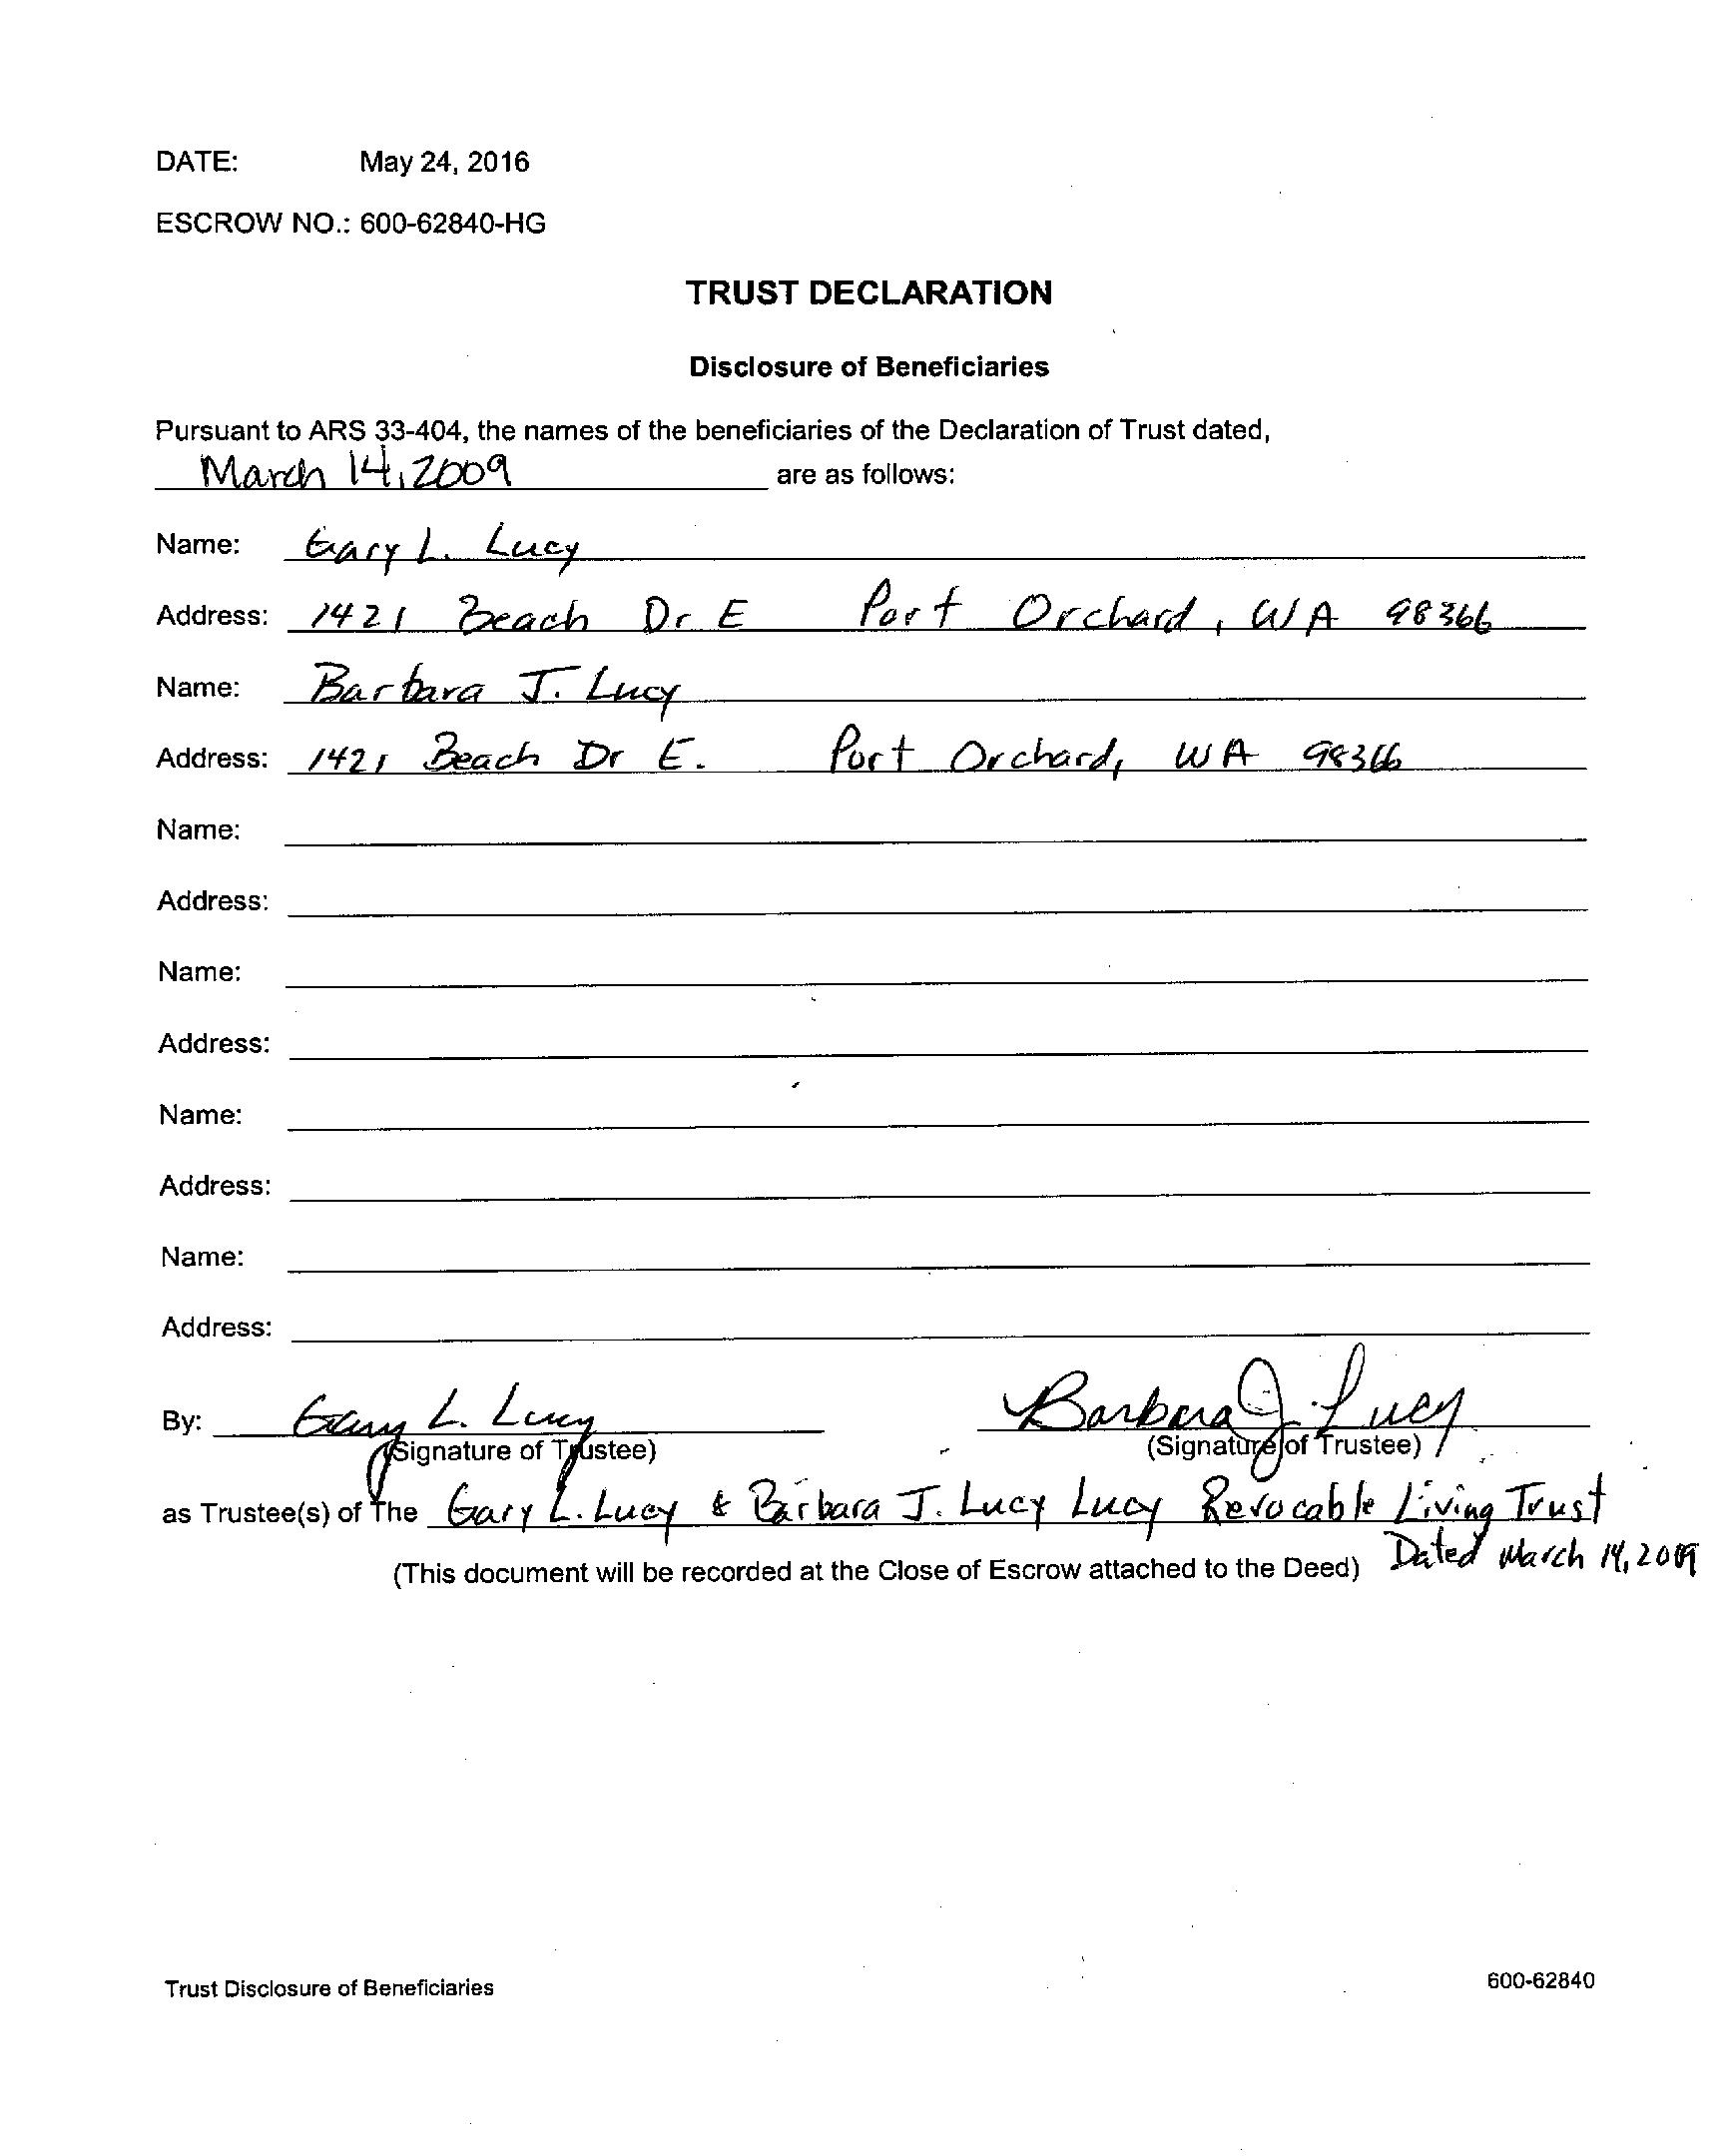 DATE: May 24, 2016
ESCROW NO.: 600-62840-HG
TRUST DECLARATION
Disclosure of Beneficiaries
Pursuant to ARS 33-404, the names of the beneficiaries of the Declaration of Trust dated,
March 14, 2009 are as follows:
Name: Gary L. Lucy
Address: 1421 Beach Dr E Port Orchard, WA 98366
Name: Barbara J. Lucy
Address: 1421 Beach Dr E. Port Orchard, WA 98366
Name:
Address:
Name:
Address:
Name:
Address:
Name:
Address:
By: Gary L. Lucy Barbara J. Lucy
(Signature of Trustee) (Signature of Trustee)
as Trustee(s) of The Gary L. Lucy & Barbara J. Lucy Lucy Revocable Living Trust
(This document will be recorded at the Close of Escrow attached to the Deed) Dated March 14, 2009
Trust Disclosure of Beneficiaries 600-62840